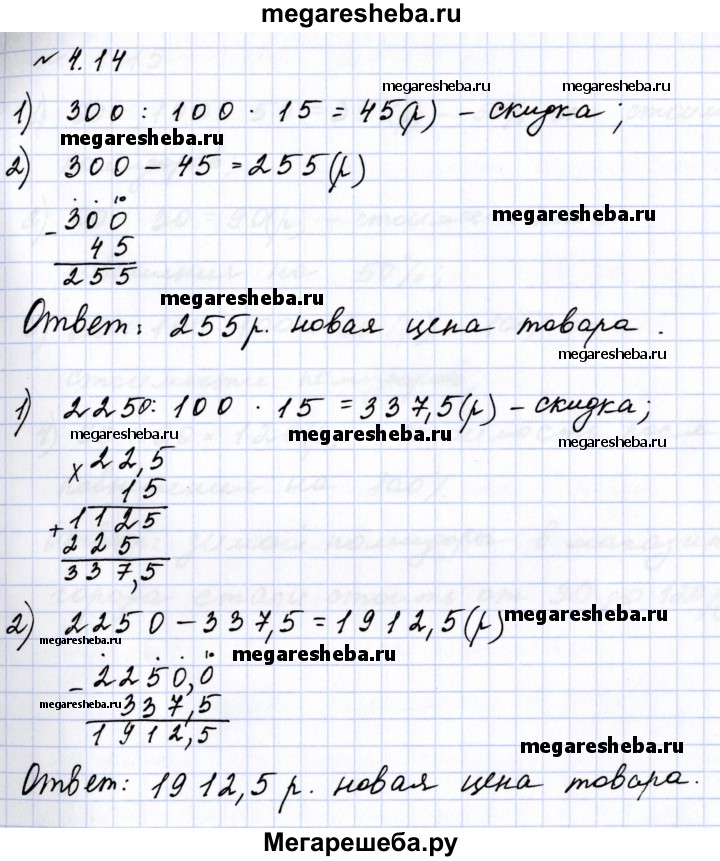 megaresheba.ru
№ 4.14
megaresheba.ru megaresheba.ru
1) 300 : 100 · 15 = 45(р) – скидка;
megaresheba.ru
2) 300 – 45 = 255(р)
10
– 300
megaresheba.ru
45
255
megaresheba.ru
Ответ: 255р. новая цена товара.
megaresheba.ru
1) 2250 : 100 · 15 = 337,5(р) – скидка;
megaresheba.ru megaresheba.ru megaresheba.ru
× 22,5
15
+ 1125
225
337,5
2) 2250 – 337,5 = 1912,5(р)
megaresheba.ru
megaresheba.ru
megaresheba.ru
10
– 2250,0
337,5
megaresheba.ru
1912,5
megaresheba.ru
Ответ: 1912,5 р. новая цена товара.
Мегарешеба.ру